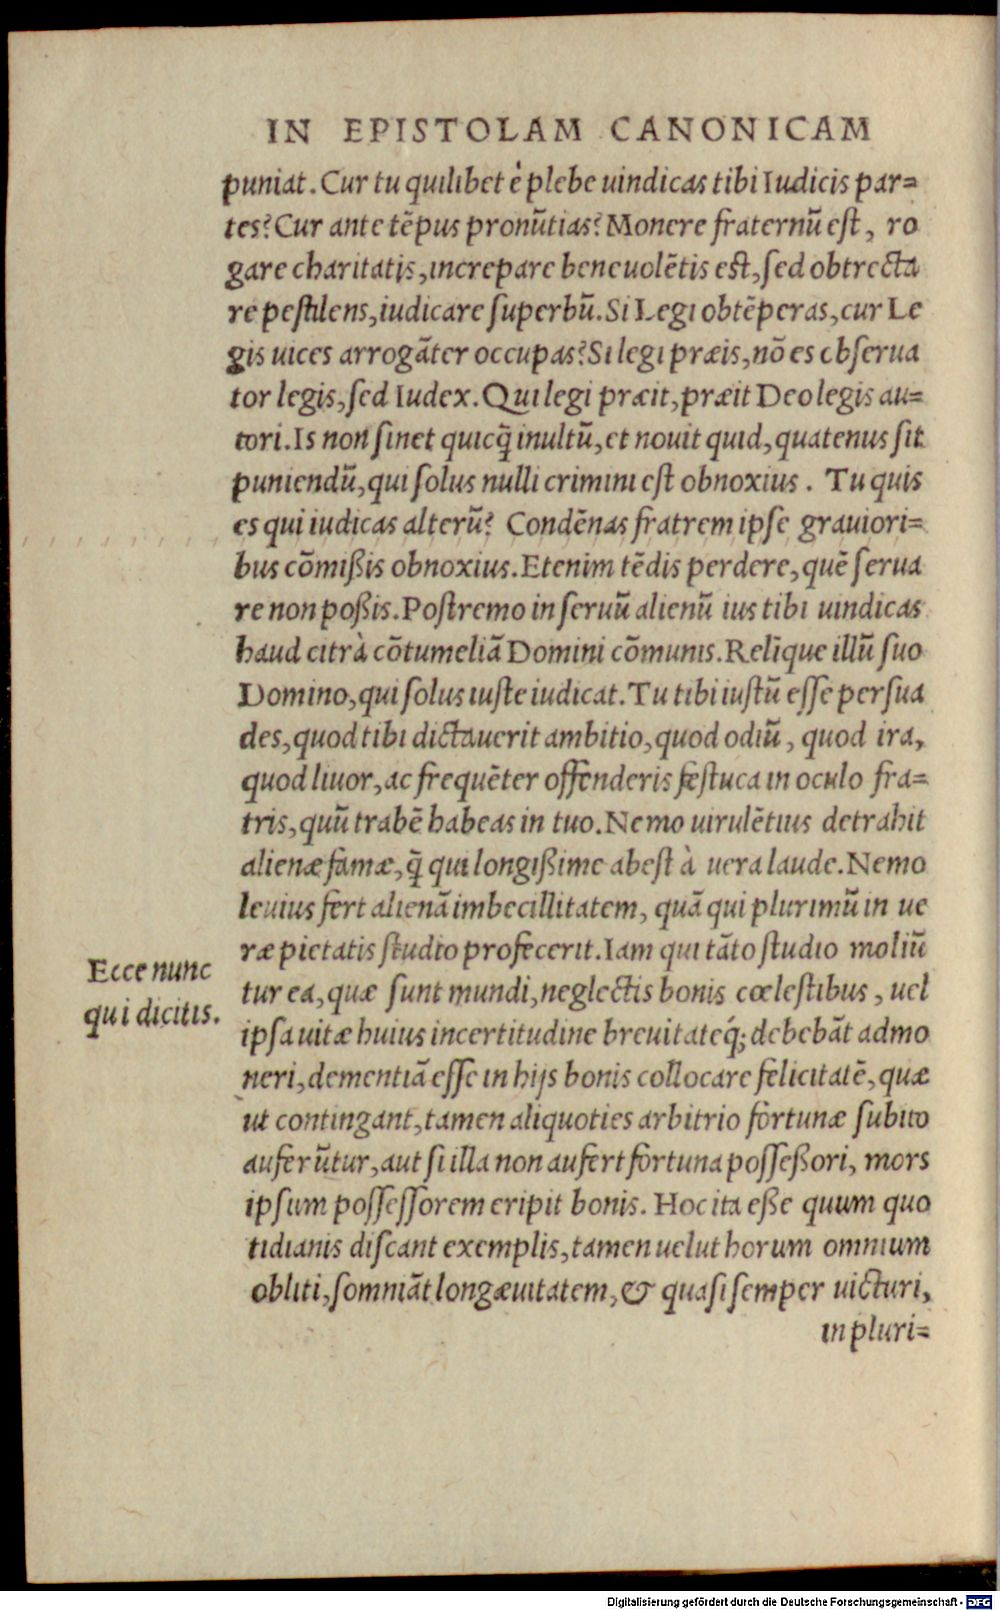 IN EPISTOLAM CANONICAM
puniat. Cur tu quilibet è plebe uindicas tibi Iudicis par=
tes? Cur ante tẽpus pronũtias? Monere fraternũ est, ro
gare charitatis, increpare beneuolẽtis est, sed obtrecta
re pestilens, iudicare superbũ. Si Legi obtẽperas, cur Le
gis uices arrogãter occupas? Si legi præis, nõ es obserua
tor legis, sed Iudex. Qui legi præit, præit Deo legis au=
tori. Is non sinet quicq̃ inultũ, et nouit quid, quatenus sit
puniendũ, qui solus nulli crimini est obnoxius. Tu quis
es qui iudicas alterũ? Condẽnas fratrem ipse grauiori=
bus cõmißis obnoxius. Etenim tẽdis perdere, quẽ serua
re non poßis. Postremo in seruũ alienũ ius tibi uindicas
haud citrà cõtumeliã Domini cõmunis. Relĩque illũ suo
Domino, qui solus iuste iudicat. Tu tibi iustũ esse persua
des, quod tibi dictauerit ambitio, quod odiũ, quod ira,
quod liuor, ac frequẽter offenderis festuca in oculo fra=
tris, quũ trabẽ habeas in tuo. Nemo uirulẽtius detrahit
alienæ famæ, q̃ qui longißime abest à uera laude. Nemo
leuius fert alienã imbecillitatem, quã qui plurimũ in ue
ræ pietatis studio profecerit. Iam qui tãto studio moliũ
Ecce nunc
qui dicitis.
tur ea, quæ sunt mundi, neglectis bonis cœlestibus, uel
ipsa uitæ huius incertitudine breuitateq́; debebãt admo
neri, dementiã esse in hijs bonis collocare felicitatẽ, quæ
ut contingant, tamen aliquoties arbitrio fortunæ subito
auferũtur, aut si illa non aufert fortuna posseßori, mors
ipsum possessorem eripit bonis. Hoc ita eße quum quo
tidianis discant exemplis, tamen uelut horum omnium
obliti, somniãt longæuitatem, & quasi semper uicturi,
in pluri=
Digitalisierung gefördert durch die Deutsche Forschungsgemeinschaft - DFG